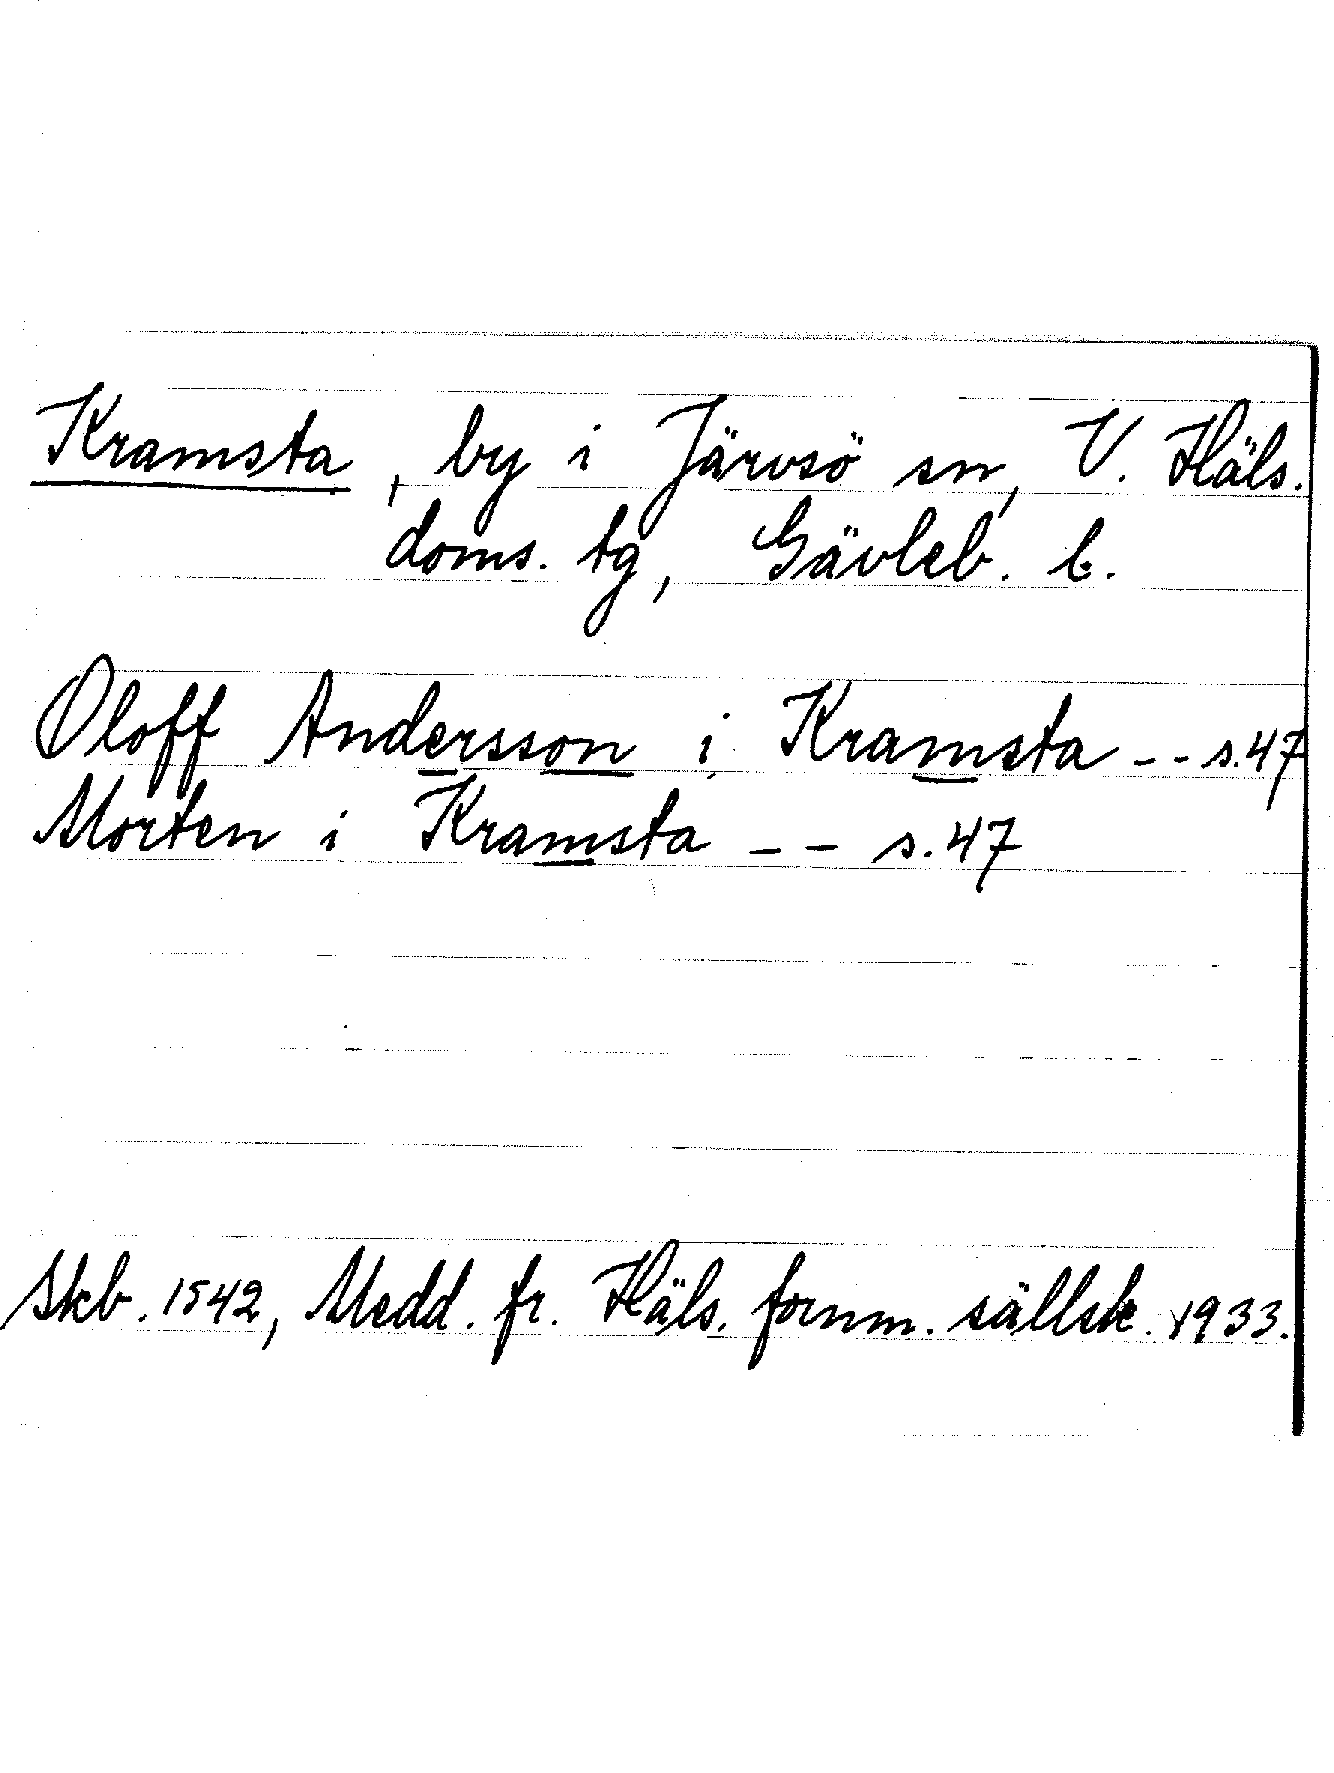 Kramsta, by i Järvsö sn, V. Häls.
doms. tg, Gävleb. l.
Oloff Andersson i Kramsta -- s.47
Morten i Kramsta -- s.47
Skb. 1542, Medd. fr. Häls. fornm. sällsk. 1933.